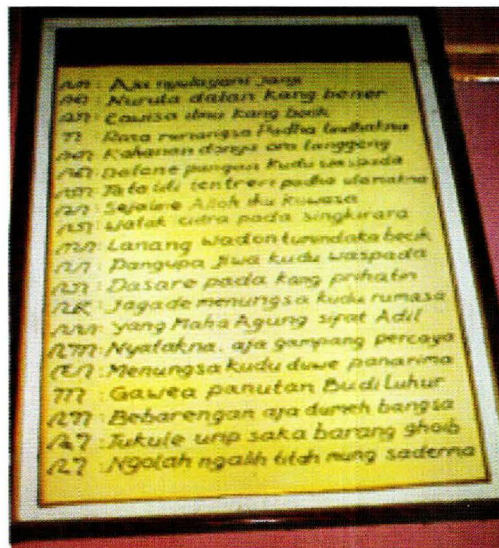 ꦲ : Aja nyulayani janji
ꦤ : Nuruta dalan kang bener
ꦕ : Cawisa ilmu kang becik
ꦫ : Rasa rumangsa Padha
ꦏ : Kahanan donya ora langgeng
ꦢ : Dalane pangan kudu waspada
ꦠ : Tata titi tentrem padha
ꦱ : Sejatine Alloh iku kuwasa
ꦮ : Watak cidra pada singkirana
ꦭ : Lanang wadon tumindaka becik
ꦥ : Pangupa jiwa kudu waspada
ꦝ : Dasare pada kang prihatin
ꦗ : Jagade menungsa kudu rumasa
ꦪ : Yang Maha Agung sipat Adil
ꦚ : Nyatakna, aja gampang percaya
ꦩ : Menungsa kudu duwe panarima
ꦒ : Gawea panutan Budi Luhur
ꦧ : Bebarengan aja dumeh bangsa
ꦛ : Tukule urip saka barang ghoib
ꦔ : Ngolah ngalih titah mung saderma